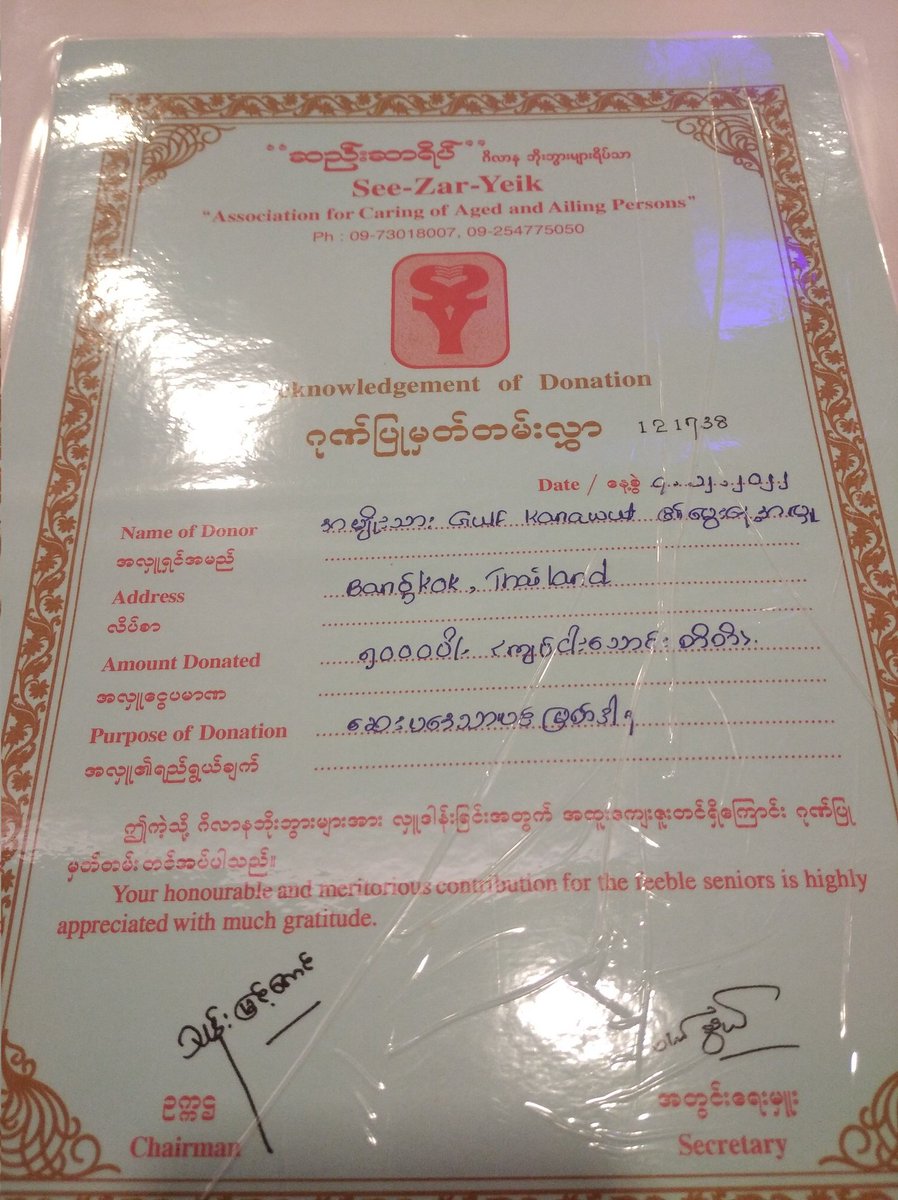 "ဆည်းဆာရိပ်" ဂိလာန ဘိုးဘွားများရိပ်သာ
See-Zar-Yeik
"Association for Caring of Aged and Ailing Persons"
Ph : 09-73018007, 09-254775050
cknowledgement of Donation
ဂုဏ်ပြုမှတ်တမ်းလွှာ 121738
Date / နေ့စွဲ ၄.၁၂.၂၀၂၂
Name of Donor အမျိုးသား Gulf Kanawut ၏မွေးနေ့အလှူ
အလှူရှင်အမည်
Address Bangkok, Thailand
လိပ်စာ
Amount Donated ၅၀၀၀၀ိ/- ကျပ်ငါးသောင်းတိတိ
အလှူငွေပမာဏ
Purpose of Donation ဆေးပဒေသာပင်မြတ်ဒါန
အလှူ၏ရည်ရွယ်ချက်
ဤကဲ့သို့ ဂိလာနဘိုးဘွားများအား လှူဒါန်းခြင်းအတွက် အထူးကျေးဇူးတင်ရှိကြောင်း ဂုဏ်ပြု
မှတ်တမ်းတင်အပ်ပါသည်။
Your honourable and meritorious contribution for the feeble seniors is highly
appreciated with much gratitude.
သန်းမြင့်အောင်
ဥက္ကဋ္ဌ အတွင်းရေးမှူး
Chairman Secretary